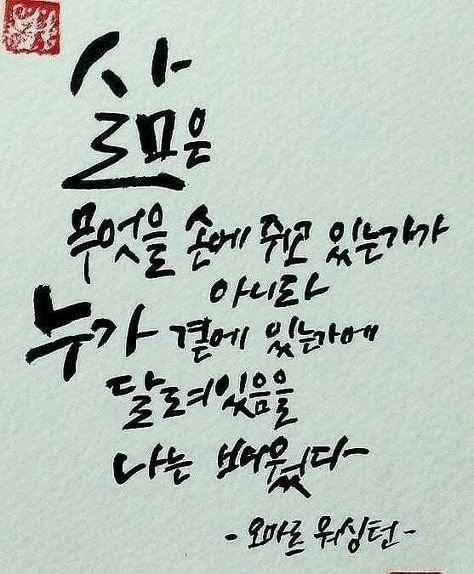 삶은
무엇을 손에 쥐고 있는가가
아니라
누가 곁에 있는가에
달려있음을
나는 배웠다
-오마르 워싱턴-